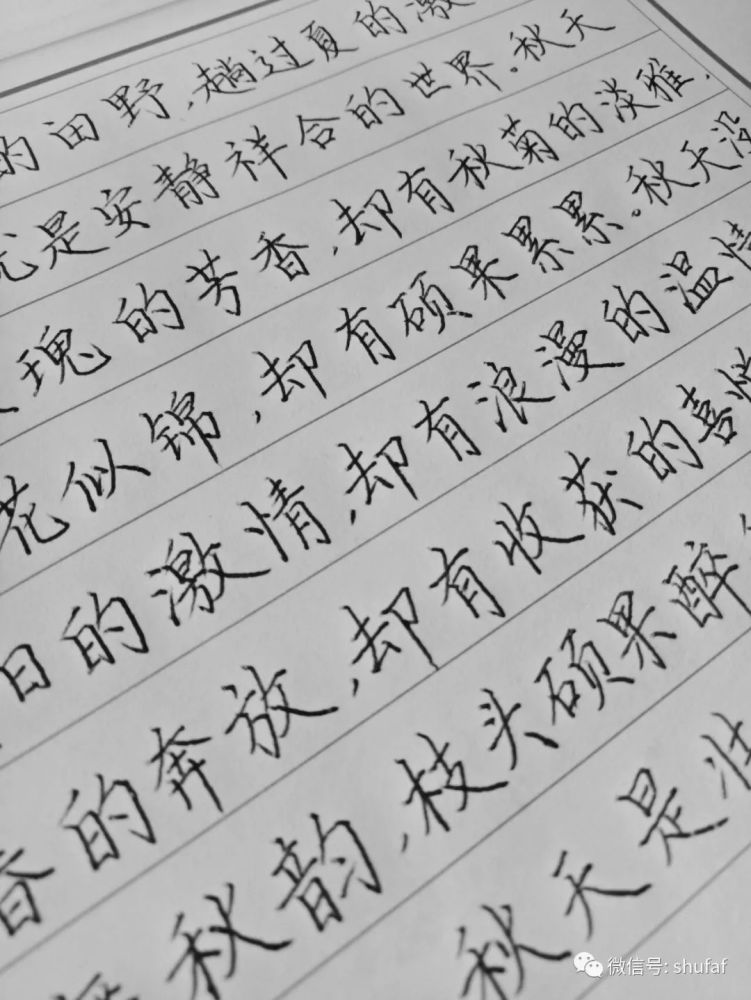 的田野,趟过夏的激
就是安静祥合的世界。秋天
瑰的芳香,却有秋菊的淡雅,
花似锦,却有硕果累累。秋天没
日的激情,却有浪漫的温情
的奔放,却有收获的喜悦
秋韵,枝头硕果醉
秋天是
微信号: shufaf